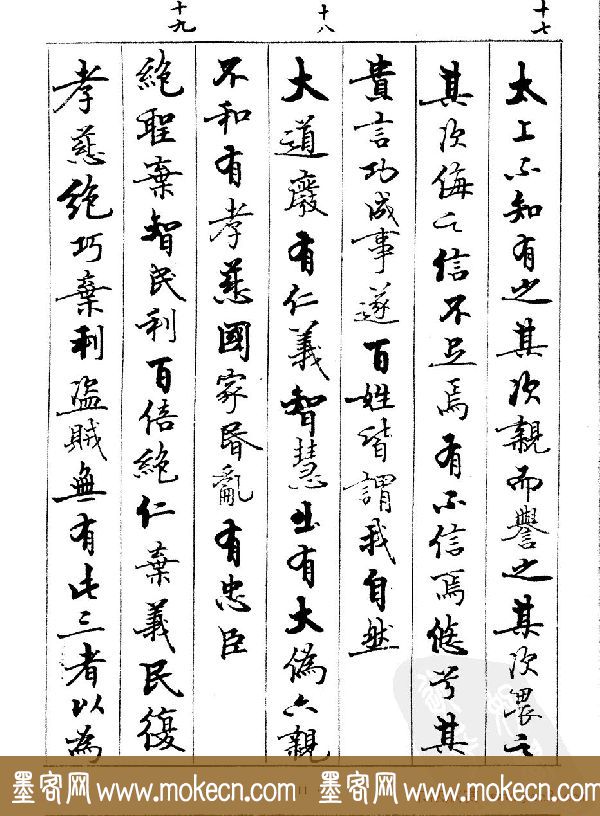 十七
太上不知有之其次親而譽之其次畏之
其次侮之信不足焉有不信焉悠兮其
貴言功成事遂百姓皆謂我自然
十八
大道廢有仁義智慧出有大偽六親
不和有孝慈國家昏亂有忠臣
十九
絕聖棄智民利百倍絕仁棄義民復
孝慈絕巧棄利盜賊無有此三者以為
墨客网 www.mokecn.com 墨客网 www.mokecn.com